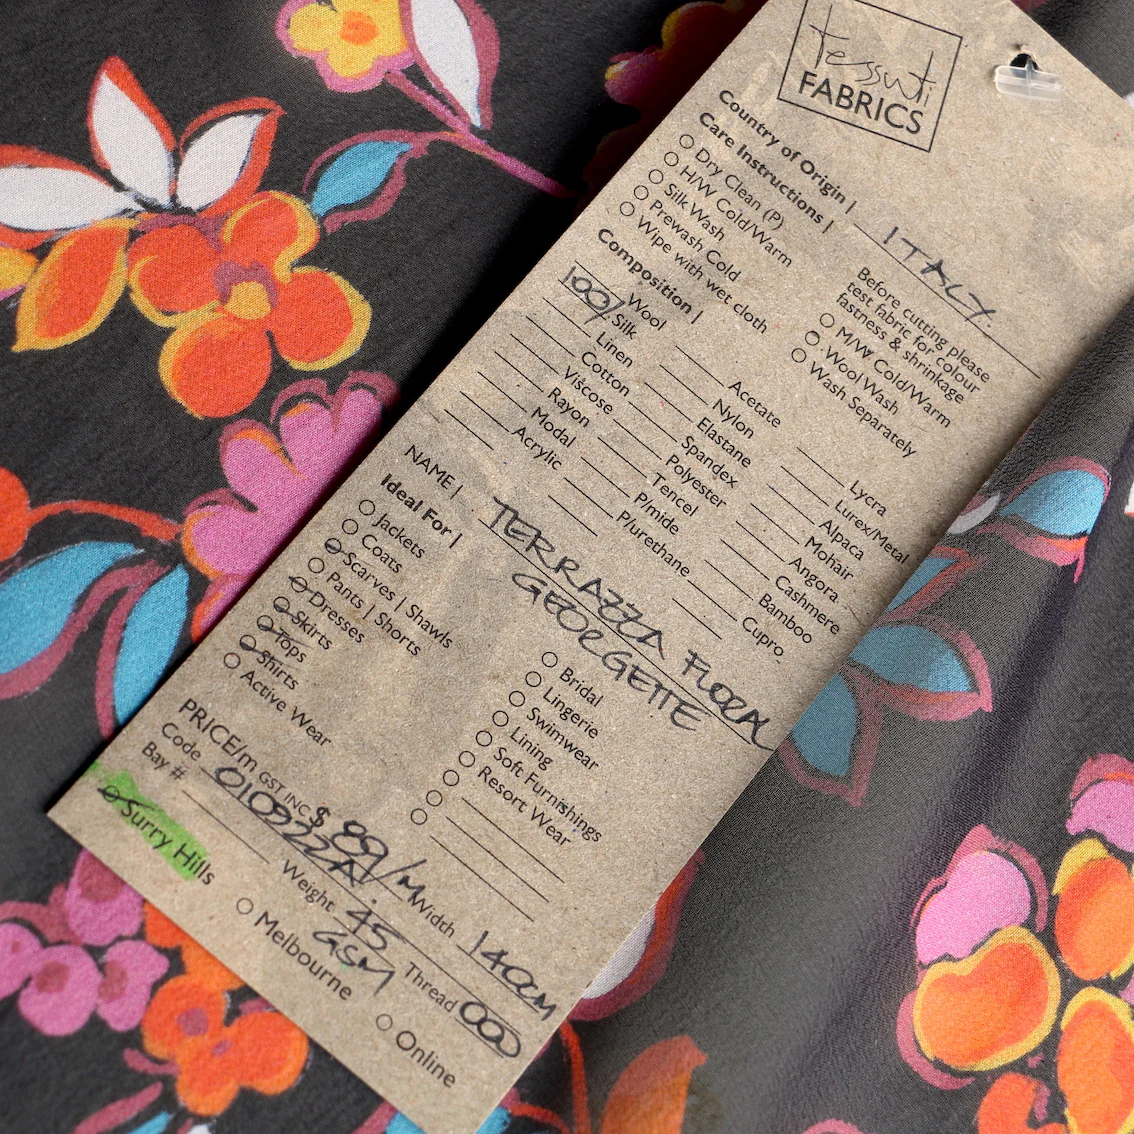 tessuti
FABRICS
Country of Origin | ITALY.
Care Instructions |
Dry Clean (P)
H/W Cold/Warm
Silk Wash
Prewash Cold
Wipe with wet cloth
Before cutting please
test fabric for colour
fastness & shrinkage
M/W Cold/Warm
Wool Wash
Wash Separately
Composition |
Wool
100% Silk
Linen
Cotton
Viscose
Rayon
Modal
Acrylic
Acetate
Nylon
Elastane
Spandex
Polyester
Tencel
P/mide
P/urethane
Lycra
Lurex/Metal
Alpaca
Mohair
Angora
Cashmere
Bamboo
Cupro
NAME | TERRAZZA FLORAL
GEORGETTE
Ideal For |
Jackets
Coats
Scarves | Shawls
Pants | Shorts
Dresses
Skirts
Tops
Shirts
Active Wear
Bridal
Lingerie
Swimwear
Lining
Soft Furnishings
Resort Wear
PRICE/m GST INC $ 89/M
Code 010922A
Width 140CM
Bay #
Weight 45
GSM
Thread
Surry Hills
Melbourne
Online